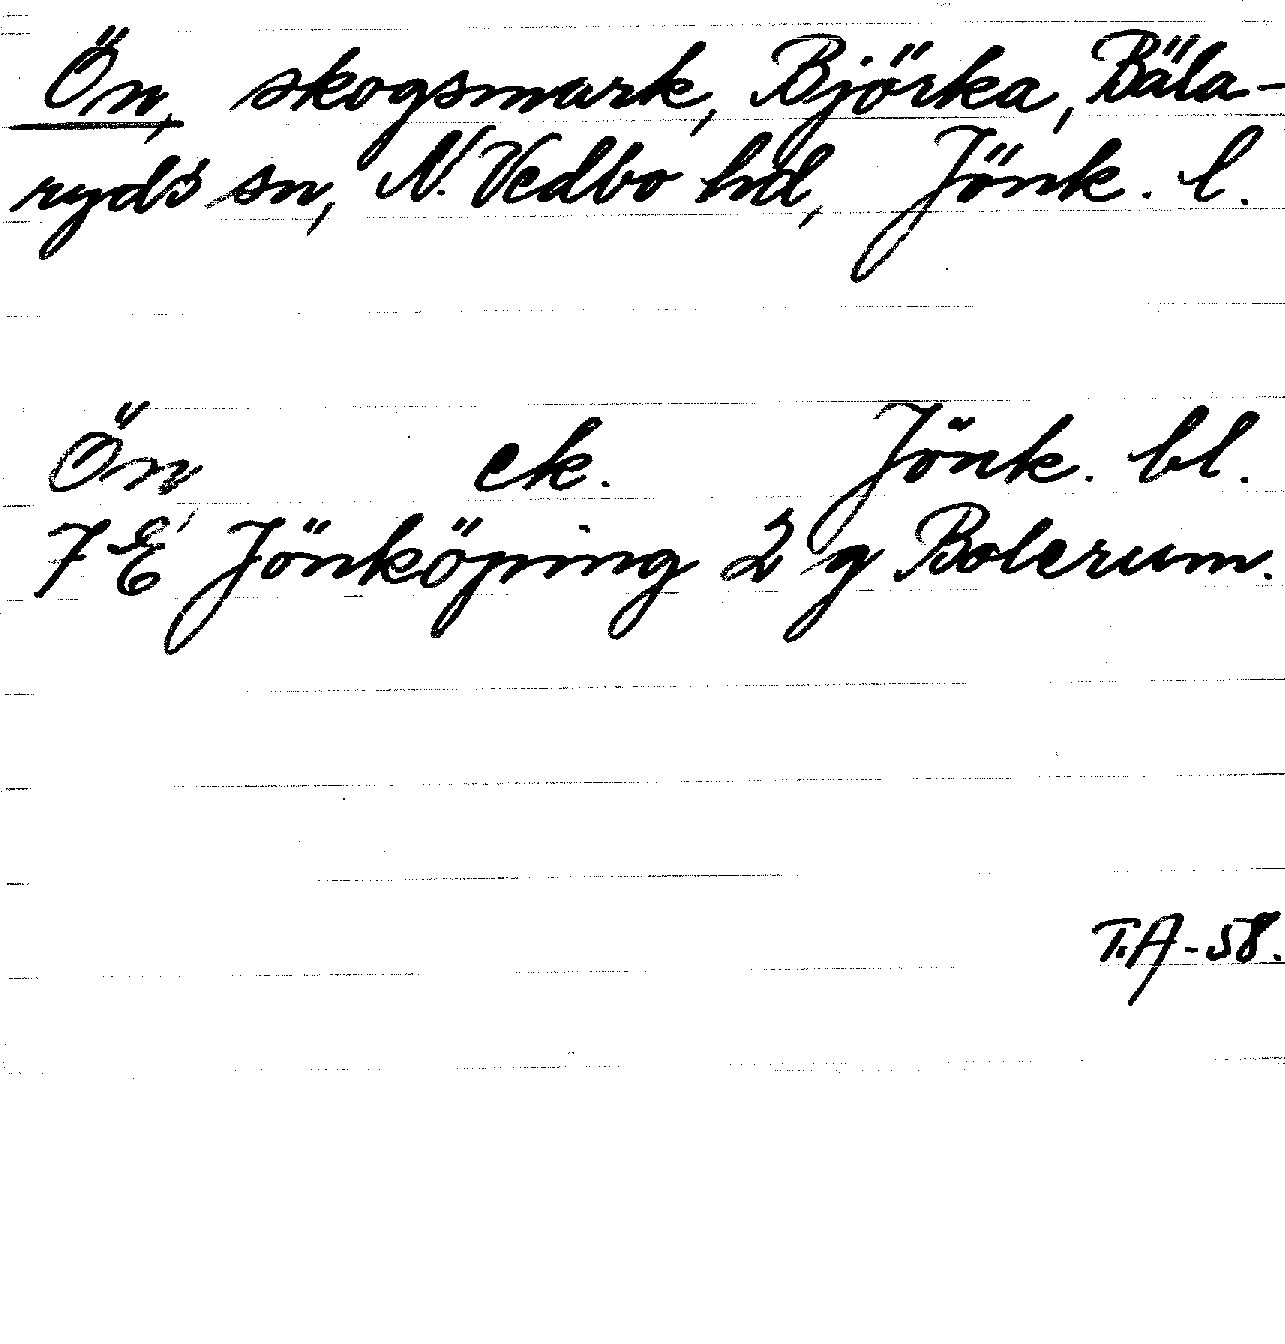 Ön, skogsmark, Björka, Bäla-
ryds sn, N. Vedbo hd, Jönk. l.
Ön ek. Jönk. bl.
7 E Jönköping 2 g Bolerum.
T.A-58.